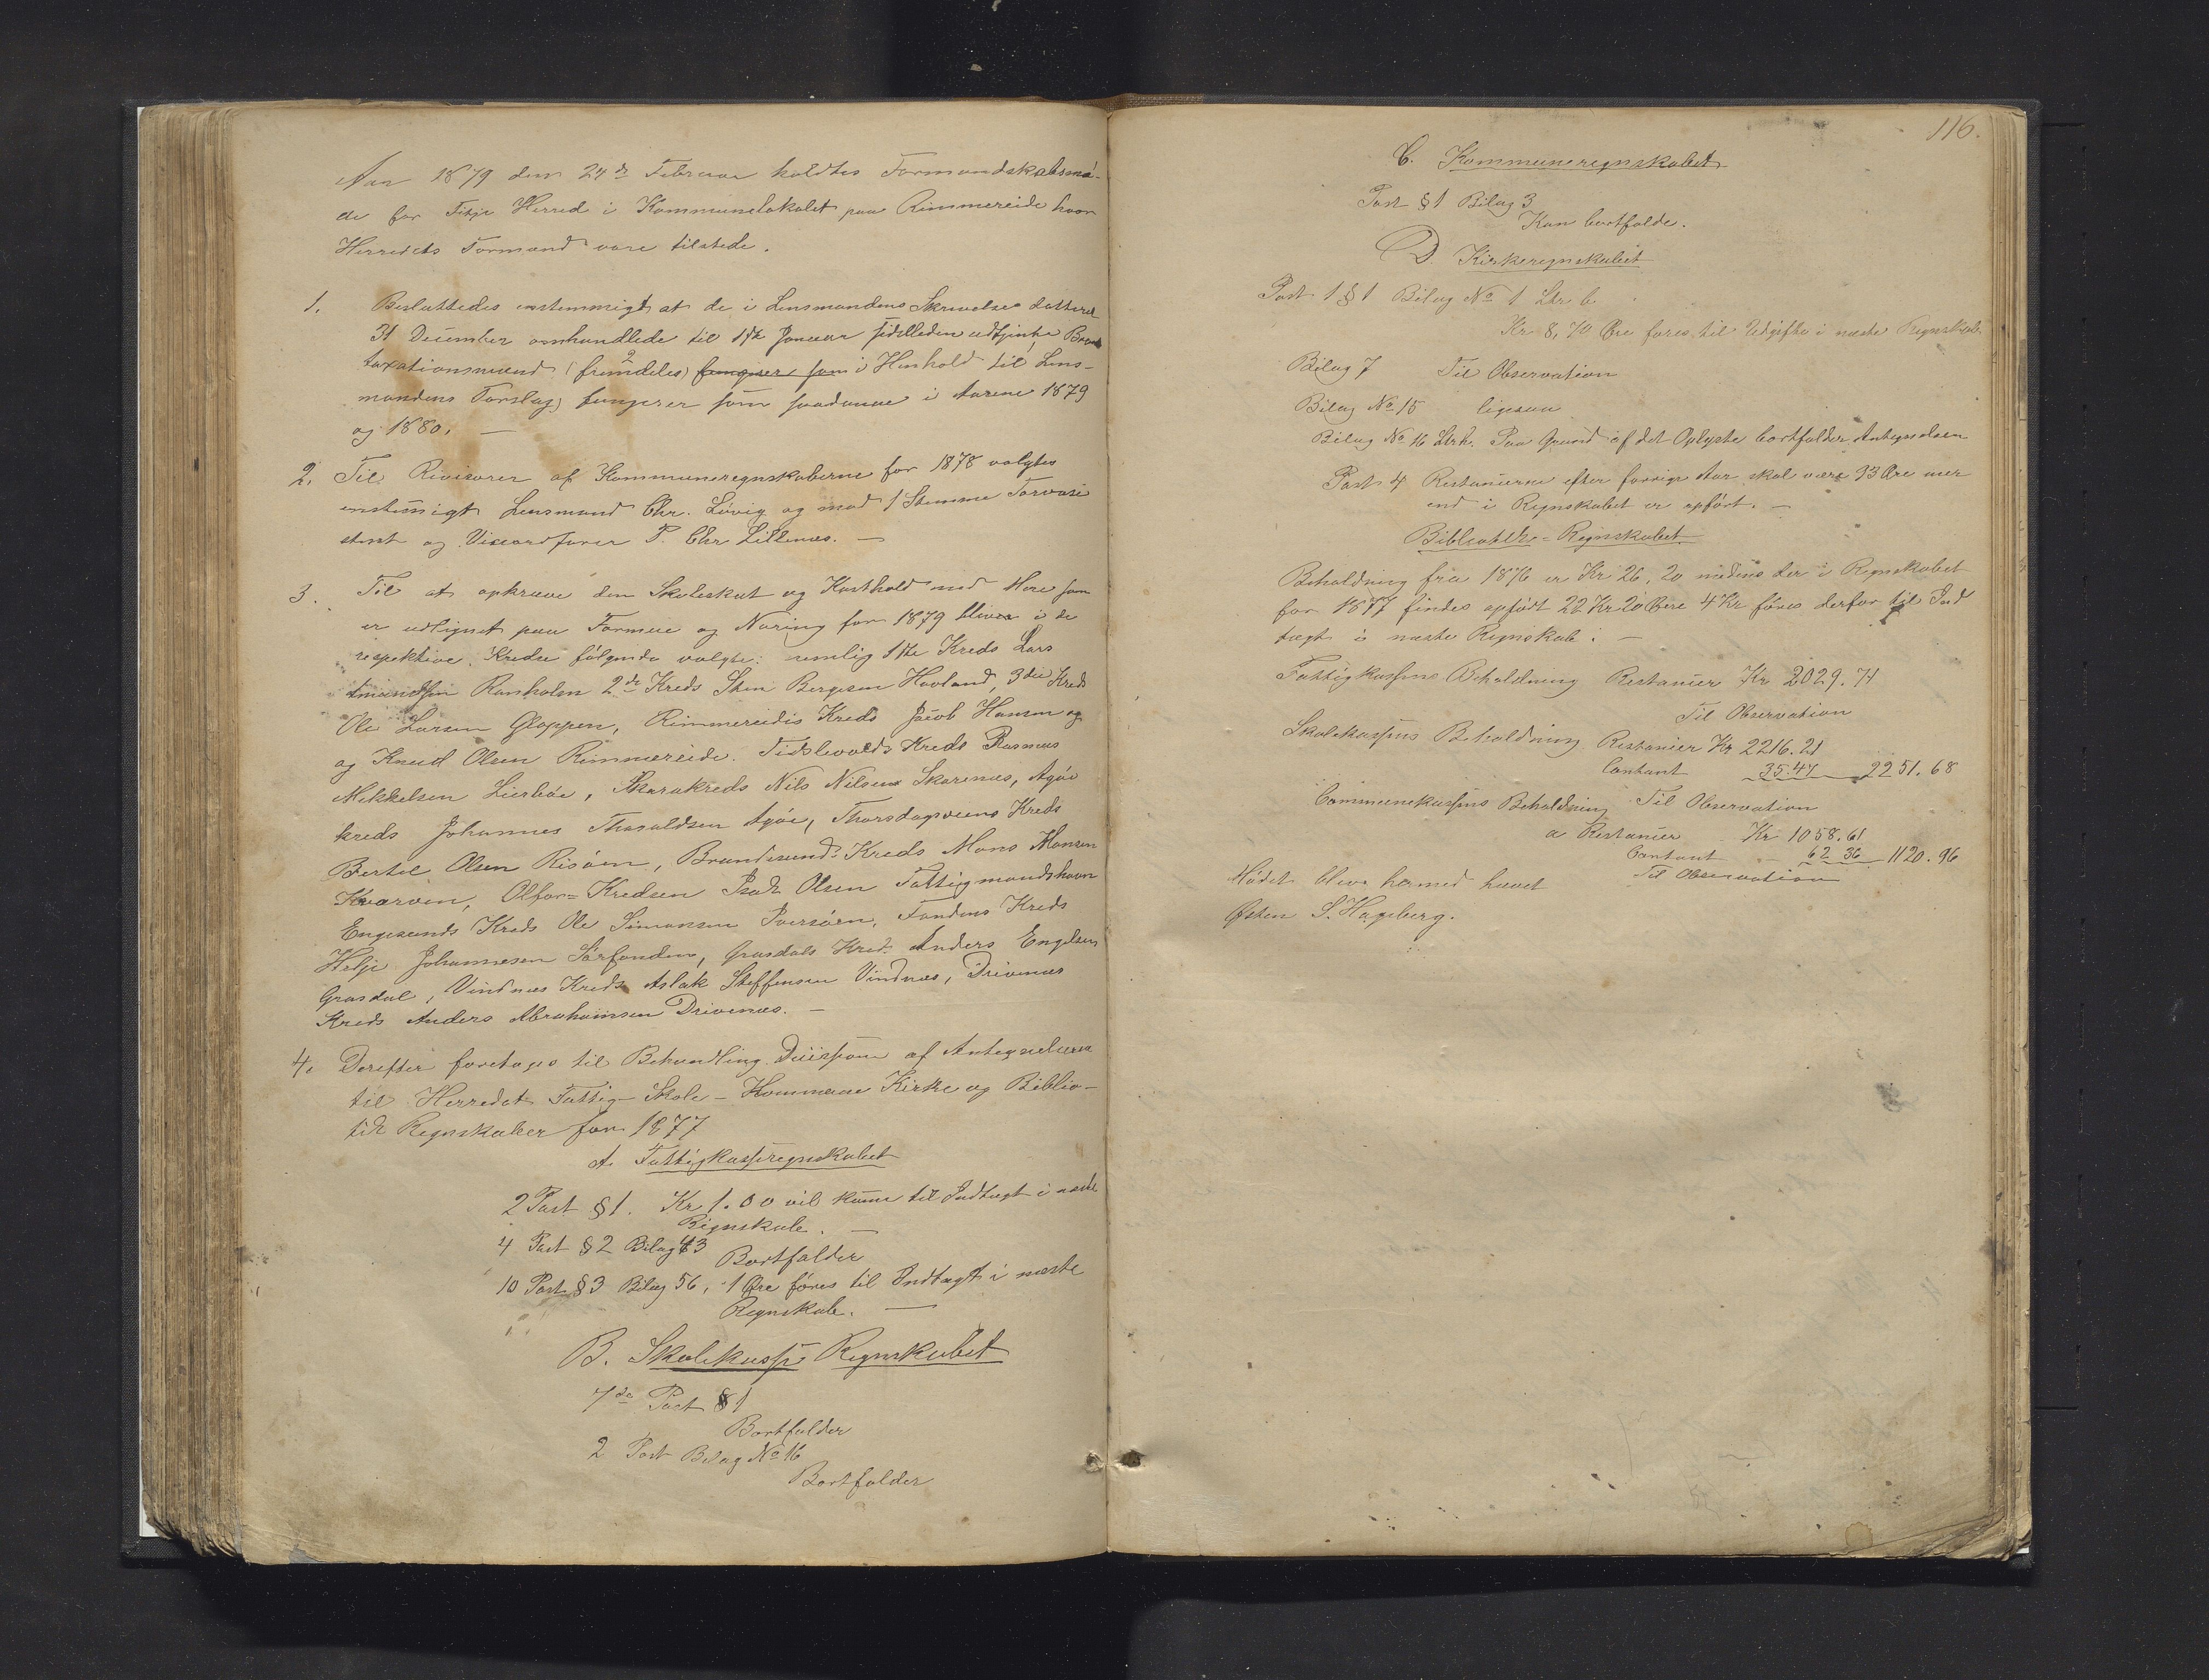 Aar 1879 den 24de Februar holdtes Formandskabsmö-
de for Fitje Herred i Kommunelokalet paa Rimmereide hvor
Herredets Formænd vare tilstede.
1. Besluttedes enstemmigt at de i Lensmandens Skrivelse datteret
31 December omhandlede til 1ste Januar sidstleden udtjente Brand
taxationsmænd (fremdeles) fungerer som i Henhold til Lens-
mandens Forslag) fungerer som saadanne i Aarene 1879
og 1880. —
2. Til Revisorer af Kommuneregnskaberne for 1878 valgtes
enstemigt Lensmand Chr. Lövig og mod 1 Stemme
og Viceordförer P. Chr. Lillenæs. —
3. Til at opkræve den Skoleskat og Kosthold med Mere som
er udlignet paa Formue og Næring for 1879 bliver i de
respektive Kredse fölgende valgte: nemlig 1ste Kreds Lars
Amundsen Ramsholm 2de Kreds Sten Bergesen Hovland, 3die Kreds
Ole Larsen Gloppen, Rimmereidis Kreds Jacob Hansen og
og Knud Olsen Rimmereide. Tidslevolds Kreds Rasmus
Mikkelsen Lierböe, Skarakreds Nils Nilsen Skorenæs, Agöe
kreds Johannes Thoraldsen Agöe, Thorsdagsveens Kreds
Bertel Olsen Risöen, Brandesunds Kreds Mons Monsen
Kvarven, Olfor-Kredsen Isak Olsen Fattigmandshavn
Engesunds Kreds Ole Simonsen Iversöen, Fondens Kreds
Helje Johannesen Sörfonden, Grasdals Kreds Anders Engelsen
Grasdal, Vindnæs Kreds Aslak Steffensen Vindnæs, Drivenæs
Kreds Anders Abrahamsen Drivenæs. —
4. Derefter foretages til Behandling Decision af Antegnelserne
til Herredets Fattig- Skole- Kommune Kirke og Biblio-
tek Regnskaber for 1877
A. Fattigkasseregnskabet
2 Post § 1. Kr 1.00 vil komme til Indtægt i næste
Regnskab. —
4 Post § 2 Bilag 43
Bortfalder
10 Post § 3 Bilag 56, 1 Öre föres til Indtægt i næste
Regnskab. —
B. Skolekasse Regnskabet
7de Post § 1
Bortfalder
2 Post Bilag No 16
Bortfalder
116.
C. Kommuneregnskabet
Post § 1 Bilag 3
Kan bortfalde.
D. Kirkeregnskabet
Post 1 § 1 Bilag No 1 Ltr b
Kr 8,70 Öre föres til Udgift i næste Regnskab
Bilag 7 Til Observation
Bilag No 15 ligesaa
Bilag No 16 Paa Grund af det Oplyste bortfalder Antegnelsen
Post 4 Restancerne efter forrige Aar skal være 93 Öre mer
end i Regnskabet er opfört. —
Bibliothek-Regnskabet
Beholdning fra 1876 er Kr 26,20 medens der i Regnskabet
for 1877 findes opfört 22 Kr 20 Öre 4 Kr föres derfor til Ind
tægt i næste Regnskab. —
Fattigkassens Beholdning Restancer Kr 2029.71
Til Observation
Skolekassens Beholdning Restancer Kr 2216.21
Contant 35.47 2251.68
Communekassens Beholdning Til Observation
a Restancer Kr 1058.61
Contant - 62 36 1120.96
Mödet blev hermed hævet Til Observation
Östen S. Hageberg.